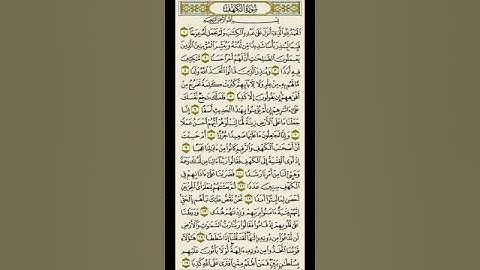 سُورَةُ الكَهْفِ
بِسْمِ اللَّهِ الرَّحْمَٰنِ الرَّحِيمِ
ٱلْحَمْدُ لِلَّهِ ٱلَّذِىٓ أَنزَلَ عَلَىٰ عَبْدِهِ ٱلْكِتَٰبَ وَلَمْ يَجْعَل لَّهُۥ عِوَجَا
قَيِّمًا لِّيُنذِرَ بَأْسًا شَدِيدًا مِّن لَّدُنْهُ وَيُبَشِّرَ ٱلْمُؤْمِنِينَ ٱلَّذِينَ
يَعْمَلُونَ ٱلصَّٰلِحَٰتِ أَنَّ لَهُمْ أَجْرًا حَسَنًا مَّٰكِثِينَ
فِيهِ أَبَدًا وَيُنذِرَ ٱلَّذِينَ قَالُوا۟ ٱتَّخَذَ ٱللَّهُ وَلَدًا
مَّا لَهُم بِهِۦ مِنْ عِلْمٍ وَلَا لِءَابَآئِهِمْ كَبُرَتْ كَلِمَةً تَخْرُجُ مِنْ
أَفْوَٰهِهِمْ إِن يَقُولُونَ إِلَّا كَذِبًا فَلَعَلَّكَ بَٰخِعٌ نَّفْسَكَ
عَلَىٰٓ ءَاثَٰرِهِمْ إِن لَّمْ يُؤْمِنُوا۟ بِهَٰذَا ٱلْحَدِيثِ أَسَفًا إِنَّا
جَعَلْنَا مَا عَلَى ٱلْأَرْضِ زِينَةً لَّهَا لِنَبْلُوَهُمْ أَيُّهُمْ أَحْسَنُ عَمَلًا
وَإِنَّا لَجَٰعِلُونَ مَا عَلَيْهَا صَعِيدًا جُرُزًا أَمْ حَسِبْتَ
أَنَّ أَصْحَٰبَ ٱلْكَهْفِ وَٱلرَّقِيمِ كَانُوا۟ مِنْ ءَايَٰتِنَا عَجَبًا
إِذْ أَوَى ٱلْفِتْيَةُ إِلَى ٱلْكَهْفِ فَقَالُوا۟ رَبَّنَآ ءَاتِنَا مِن لَّدُنكَ رَحْمَةً
وَهَيِّئْ لَنَا مِنْ أَمْرِنَا رَشَدًا فَضَرَبْنَا عَلَىٰٓ ءَاذَانِهِمْ فِى
ٱلْكَهْفِ سِنِينَ عَدَدًا ثُمَّ بَعَثْنَٰهُمْ لِنَعْلَمَ أَىُّ ٱلْحِزْبَيْنِ
أَحْصَىٰ لِمَا لَبِثُوٓا۟ أَمَدًا نَّحْنُ نَقُصُّ عَلَيْكَ نَبَأَهُم بِٱلْحَقِّ
إِنَّهُمْ فِتْيَةٌ ءَامَنُوا۟ بِرَبِّهِمْ وَزِدْنَٰهُمْ هُدًى وَرَبَطْنَا
عَلَىٰ قُلُوبِهِمْ إِذْ قَامُوا۟ فَقَالُوا۟ رَبُّنَا رَبُّ ٱلسَّمَٰوَٰتِ وَٱلْأَرْضِ
لَن نَّدْعُوَا۟ مِن دُونِهِۦٓ إِلَٰهًا لَّقَدْ قُلْنَآ إِذًا شَطَطًا هَٰٓؤُلَآءِ
قَوْمُنَا ٱتَّخَذُوا۟ مِن دُونِهِۦٓ ءَالِهَةً لَّوْلَا يَأْتُونَ عَلَيْهِم
بِسُلْطَٰنٍۭ بَيِّنٍ فَمَنْ أَظْلَمُ مِمَّنِ ٱفْتَرَىٰ عَلَى ٱللَّهِ كَذِبًا